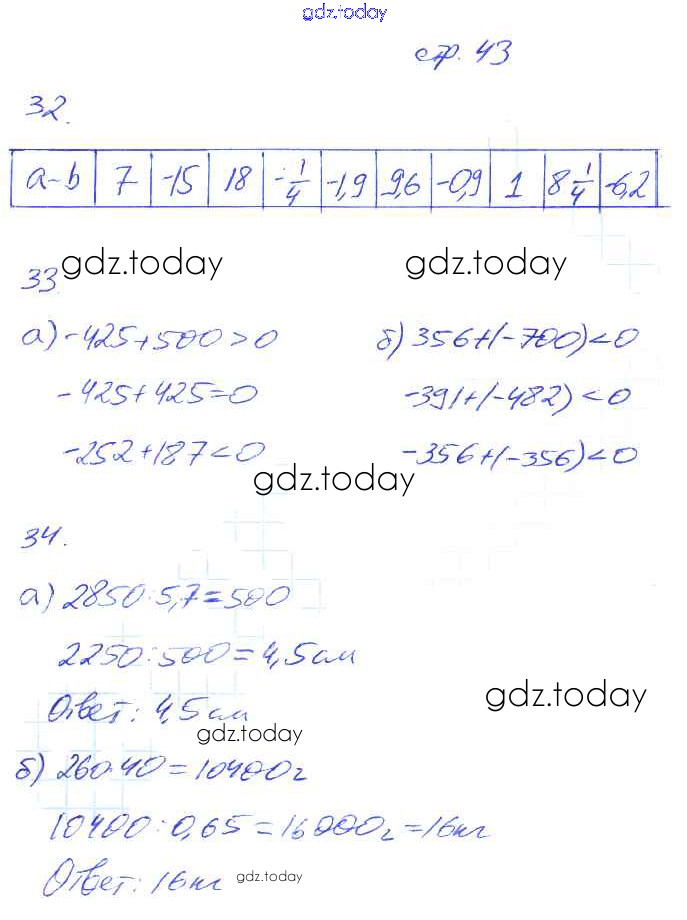 gdz.today
стр. 43
32.
a-b | 7 | -15 | 18 | -1/4 | -1,9 | 9,6 | -0,9 | 1 | 8 1/4 | -6,2
gdz.today gdz.today
33.
а) -425+500>0 б) 356+(-700)<0
-425+425=0 -391+(-482)<0
-252+187<0 -356+(-356)<0
gdz.today
34.
а) 2850:5,7=500
2250:500=4,5см
Ответ: 4,5см
gdz.today
gdz.today
б) 260·40=10400г
10400:0,65=16000г=16кг
Ответ: 16кг
gdz.today